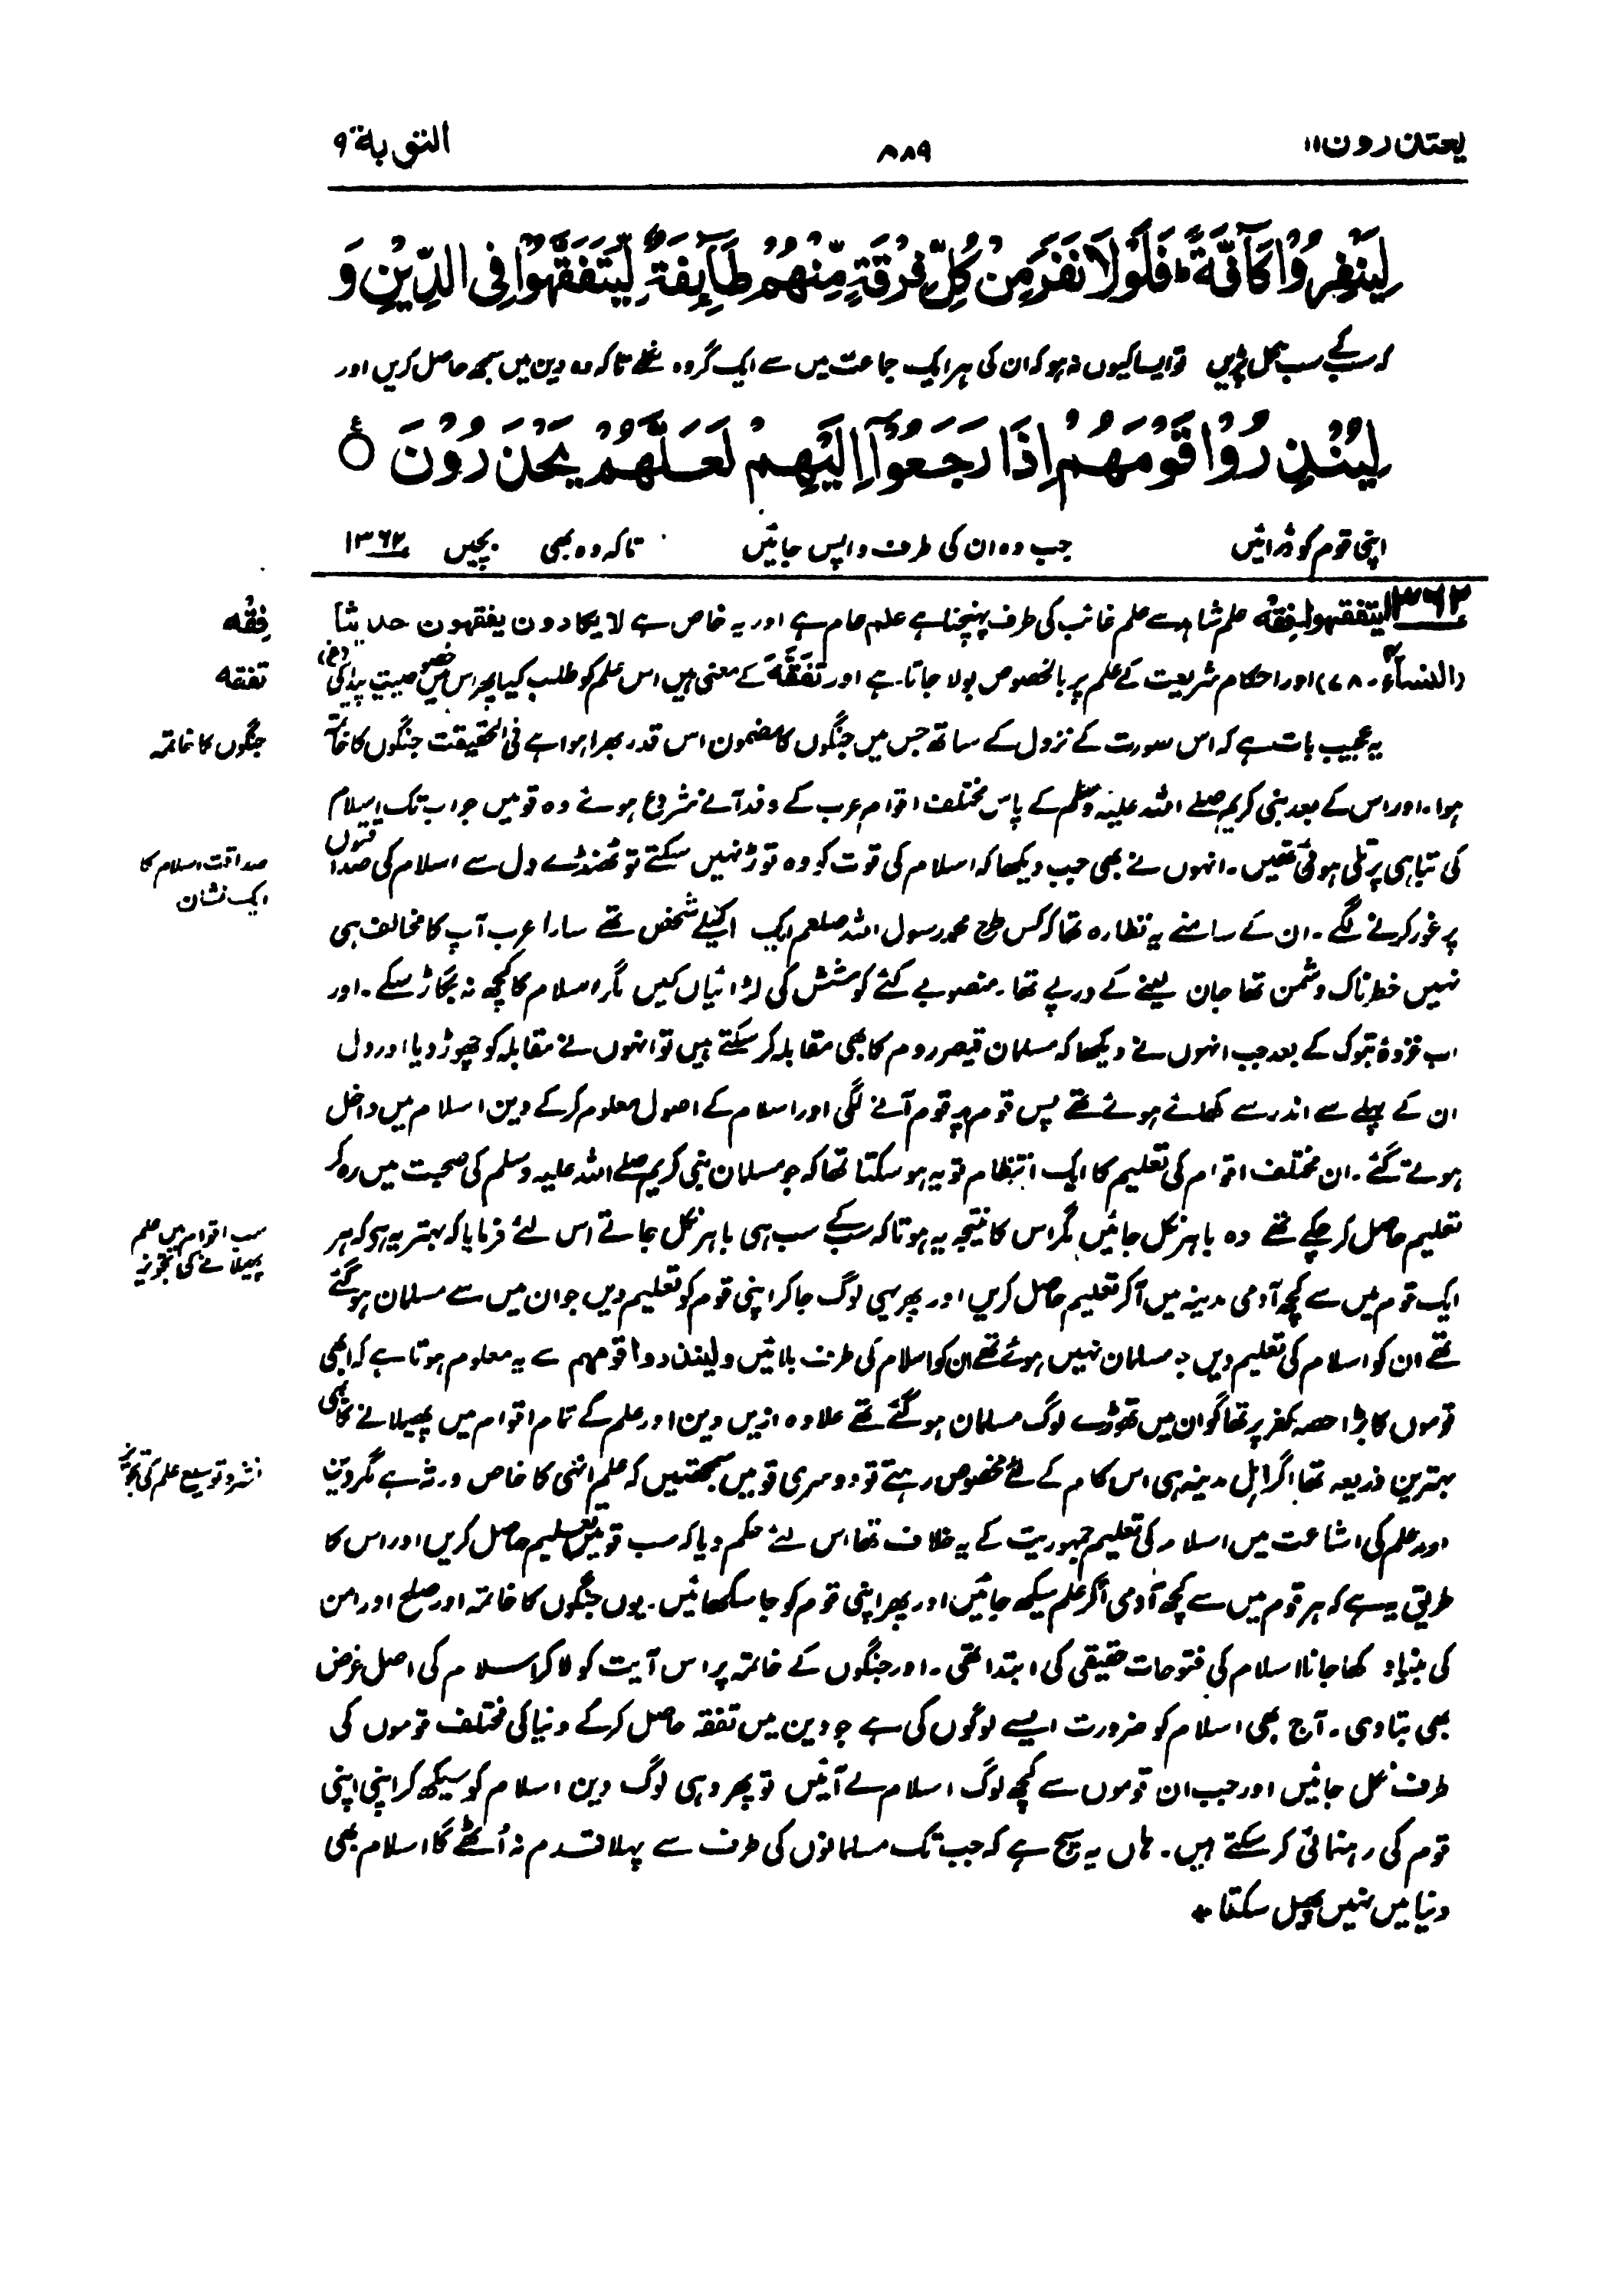 یعتذرون ۱۱
۸۸۹
التوبة ۹
لِيَنْفِرُوْا كَآفَّةً ؕ فَلَوْلَا نَفَرَ مِنْ كُلِّ فِرْقَةٍ مِّنْهُمْ طَآىِٕفَةٌ لِّيَتَفَقَّهُوْا فِى الدِّيْنِ وَ
کہ سب کے سب نکل پڑیں تو ایسا کیوں نہ ہو کہ ان کی ہر ایک جماعت میں سے ایک گروہ نکلے تاکہ وہ دین میں سمجھ حاصل کریں اور
لِيُنْذِرُوْا قَوْمَهُمْ اِذَا رَجَعُوْۤا اِلَيْهِمْ لَعَلَّهُمْ يَحْذَرُوْنَ ۠
اپنی قوم کو ڈرائیں جب وہ ان کی طرف واپس جائیں تاکہ وہ بھی بچیں ۱۳۶۲
۱۳۶۲ لیتفقہوا۔ فِقْہ علم شاہد سے علم غائب کی طرف پہنچنا ہے علم عام ہے اور یہ خاص ہے لا یکادون یفقھون حدیثاً
فِقْه
(النساء ۔ ۷۸) اور احکام شریعت کے علم پر بالخصوص بولا جاتا ہے اور تَفَقَّهَ کے معنی ہیں اس علم کو طلب کیا پھر اس میں خصوصیت پیدا کی (غ)
تفقه
یہ عجیب بات ہے کہ اس سورت کے نزول کے ساتھ جس میں جنگوں کا مضمون اس قدر بھرا ہوا ہے فی الحقیقت جنگوں کا خاتمہ
جنگوں کا خاتمہ
ہوا۔ اور اس کے بعد نبی کریم صلے اللہ علیہ وسلم کے پاس مختلف اقوام عرب کے وفد آنے شروع ہوئے وہ قومیں جو اب تک اسلام
کی تباہی پر تلی ہوئی تھیں۔ انہوں نے بھی جب دیکھا کہ اسلام کی قوت کو وہ توڑ نہیں سکتے تو ٹھنڈے دل سے اسلام کی صداقتوں
صداقت اسلام کا
ایک نشان
پر غور کرنے لگے۔ ان کے سامنے یہ نظارہ تھا کہ کس طرح محمد رسول اللہ صلعم ایک اکیلے شخص تھے سارا عرب آپ کا مخالف ہی
نہیں خطرناک دشمن تھا جان لینے کے درپے تھا۔ منصوبے کئے کوشش کی لڑائیاں کیں مگر اسلام کا کچھ نہ بگاڑ سکے۔ اور
اب غزوۂ تبوک کے بعد جب انہوں نے دیکھا کہ مسلمان قیصر روم کا بھی مقابلہ کر سکتے ہیں تو انہوں نے مقابلہ کو چھوڑ دیا اور دل
ان کے پہلے سے اندر سے کھلے ہوئے تھے پس قوم پر قوم آنے لگی اور اسلام کے اصول معلوم کر کے دین اسلام میں داخل
ہوتے گئے۔ ان مختلف اقوام کی تعلیم کا ایک انتظام تو یہ ہو سکتا تھا کہ جو مسلمان نبی کریم صلے اللہ علیہ وسلم کی صحبت میں رہ کر
تعلیم حاصل کر چکے تھے وہ باہر نکل جائیں مگر اس کا نتیجہ یہ ہوتا کہ سب کے سب ہی باہر نکل جاتے اس لئے فرمایا کہ بہتر یہ ہی کہ ہر
سب اقوام میں علم
پھیلانے کی تجویز
ایک قوم میں سے کچھ آدمی مدینہ میں آکر تعلیم حاصل کریں اور پھر یہی لوگ جا کر اپنی قوم کو تعلیم دیں جو ان میں سے مسلمان ہو گئے
تھے ان کو اسلام کی تعلیم دیں جو مسلمان نہیں ہوئے تھے ان کو اسلام کی طرف بلائیں ولینذروا قومہم سے یہ معلوم ہوتا ہے کہ ابھی
قوموں کا بڑا حصہ کفر پر تھا گو ان میں تھوڑے لوگ مسلمان ہو گئے تھے علاوہ ازیں دین اور علم کے تمام اقوام میں پھیلانے کا بھی
بہترین ذریعہ تھا اگر اہل مدینہ ہی اس کام کے لئے مخصوص رہتے تو دوسری قومیں سمجھتیں کہ علم انہی کا خاص ورثہ ہے مگر دینا
نشر و توسیع علم کی تجویز
اور علم کی اشاعت میں اسلام کی تعلیم جمہوریت کے یہ خلاف تھا اس لئے حکم دیا کہ سب قومیں تعلیم حاصل کریں اور اس کا
طریق یہ ہے کہ ہر قوم میں سے کچھ آدمی آکر علم سیکھ جائیں اور پھر اپنی قوم کو جا سکھائیں۔ یوں جنگوں کا خاتمہ اور صلح اور امن
کی بنیاد رکھا جانا اسلام کی فتوحات حقیقی کی ابتدا تھی۔ اور جنگوں کے خاتمہ پر اس آیت کو لا کر اسلام کی اصل غرض
بھی بتا دی۔ آج بھی اسلام کو ضرورت ایسے لوگوں کی ہے جو دین میں تفقہ حاصل کر کے دنیا کی مختلف قوموں کی
طرف نکل جائیں اور جب ان قوموں سے کچھ لوگ اسلام لے آئیں تو پھر وہی لوگ دین اسلام کو سیکھ کر اپنی اپنی
قوم کی رہنمائی کر سکتے ہیں۔ ہاں یہ سچ ہے کہ جب تک مسلمانوں کی طرف سے پہلا قدم نہ اُٹھے گا اسلام بھی
دنیا میں نہیں پھیل سکتا *